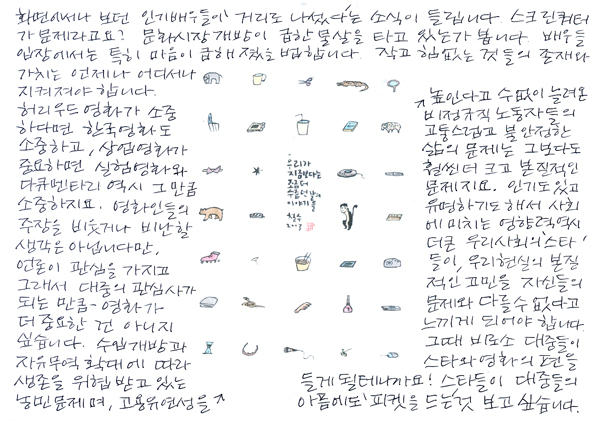 화면에서나 보던 인기배우들이 '거리로 나섰다'는 소식이 들립니다. 스크린쿼터
가 문제라고요? 문화시장개방이 급한 물살을 타고 있는가 봅니다. 배우들
입장에서는 특히 마음이 급해졌을 법합니다. 작고 힘없는 것들의 존재와
가치는 언제나 어디서나
지켜져야 합니다.
허리우드 영화가 소중
하다면 한국영화도
소중하고, 상업영화가
중요하면 실험영화와
다큐멘타리 역시 그만큼
소중하지요. 영화인들의
주장을 비웃거나 비난할
생각은 아닙니다만,
언론이 관심을 가지고
그래서 대중의 관심사가
되는 만큼 - 영화가
더 중요한 건 아니지
싶습니다. 수입개방과
자유무역 확대에 따라
생존을 위협 받고 있는
농민문제며, 고용유연성을
높인다고 수없이 늘려온
비정규직 노동자들의
고통스럽고 불안정한
삶의 문제는 그보다도
훨씬 더 크고 본질적인
문제지요. 인기도 있고
유명하기도 해서 사회
에 미치는 영향력 역시
더 큰 우리사회의 '스타'
들이, 우리현실의 본질
적인 고민을 자신들의
문제와 다를 수 없다고
느끼게 되어야 합니다.
그때 비로소 대중들이
스타와 영화의 편을
들게 될테니까요! 스타들이 대중들의
아픔에도 '피켓을 드는' 것 보고 싶습니다.
우리가
지금보다는
조금 더
이야기들
철수